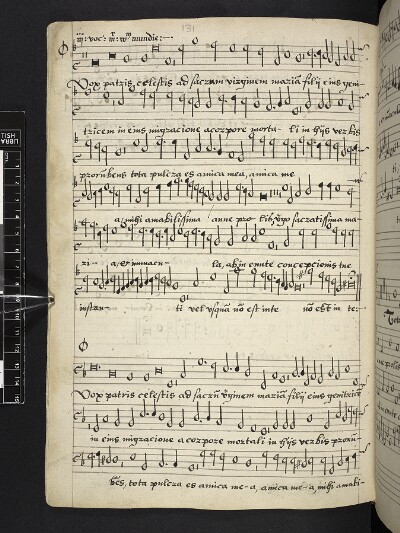 131
Vox patris celestis ad sacram virginem mariã filij eius geni-
tricem in eius migracione a corpore morta- li in hijs verbis
prorũbens tota pulcra es amica mea, amica me
a, mihi amabilissima anne pro- lib xpo sacratissima ma-
ri- a, et macu- la, ab in conceptionis tue
instan- ti vel usquã nõ est in te nõ est in te:
Vox patris celestis ad sacrũ virginem mariã filij eius genitricem
in eius migracione a corpore mortali in hijs verbis prorũ-
bẽs, tota pulcra es amica me-a, amica me-a, mihi amabi-